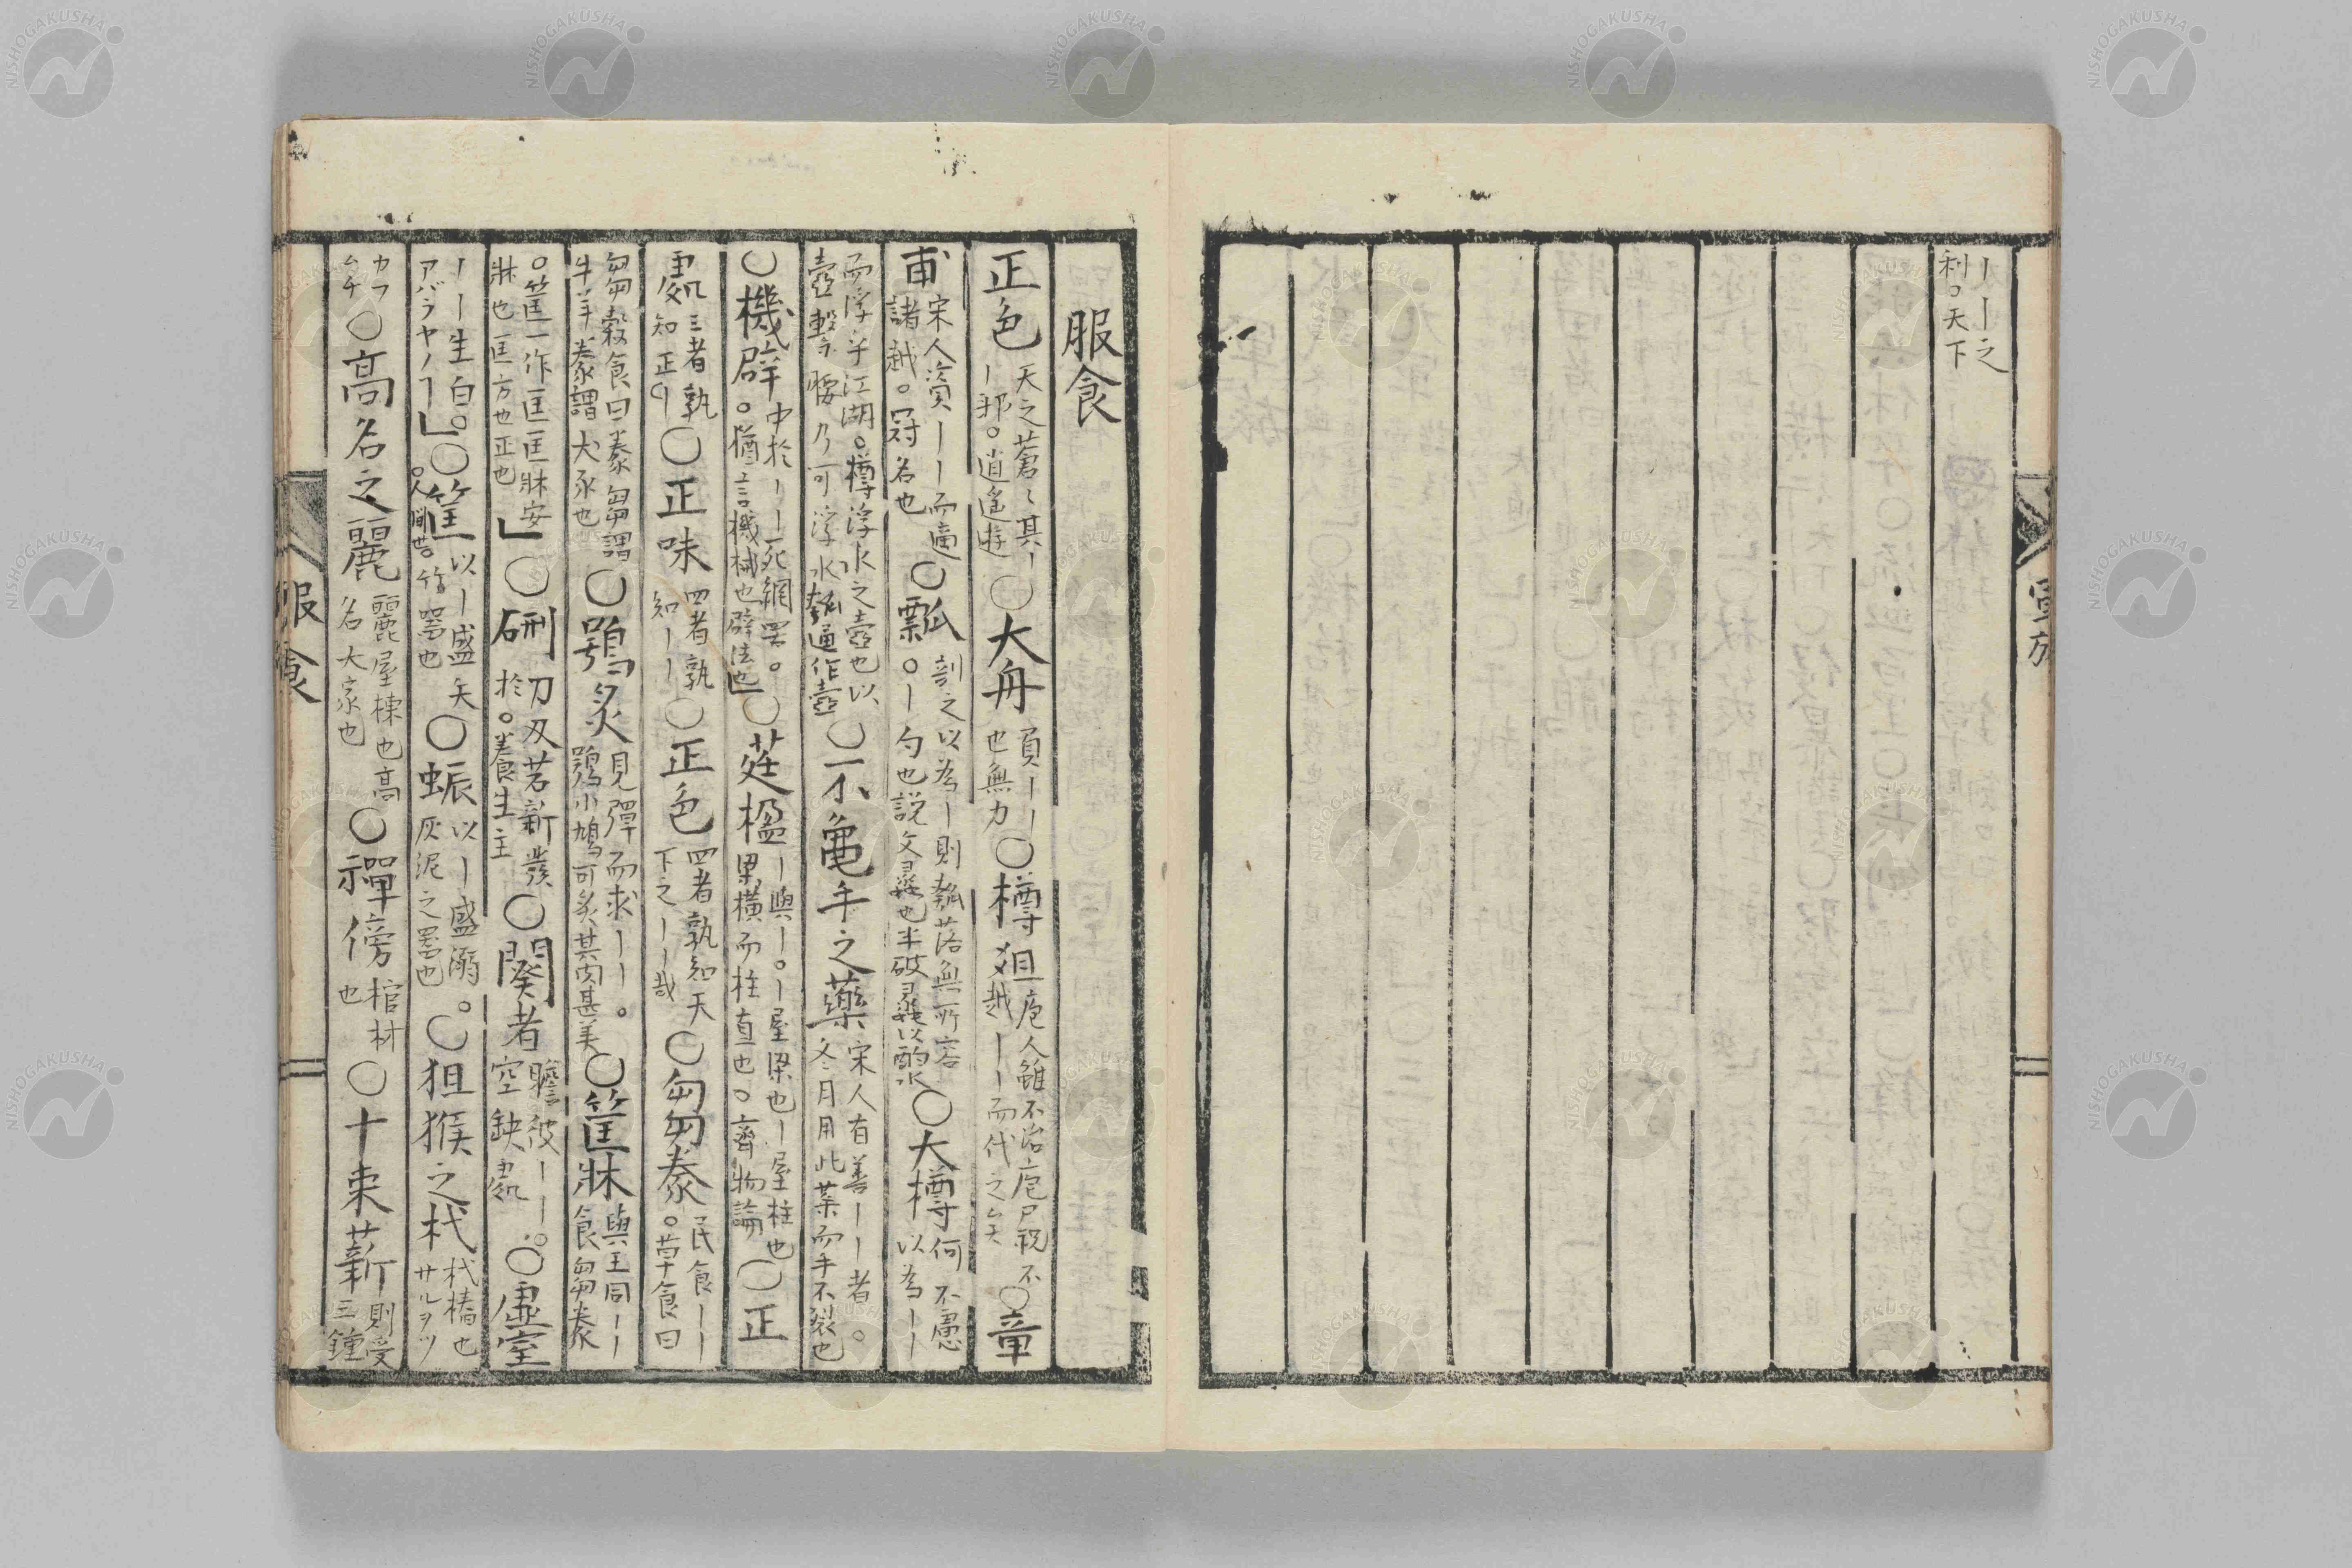 ｜｜之
利○天下
軍旅
服食
正色 天之蒼〻其｜ ｜邪○逍遙遊 ○大舟 負｜｜ 也無力 ○樽俎 庖人雖不治庖尸祝不 越｜｜而代之矣 ○章
甫 宋人資｜｜而適 諸越○冠名也 ○瓢 剖之以為｜則瓠落無所容 ○｜勺也説文蠡也半破蠡以酌水 ○大樽 何不慮 以為｜｜
而浮乎江湖○樽浮水之壺也以 壺繫腰乃可浮水瓠通作壺 ○不龜手之藥 宋人有善｜｜者○ 冬月用此藥而手不裂也
○機辟 中於｜｜死網罟○ ○猶言機械也辟法也 ○莛楹 ｜與｜○｜屋梁也｜屋柱也 梁橫而柱直也○齊物論 ○正
處 三者孰 知正｜ ○正味 四者孰 知｜｜ ○正色 四者孰知天 下之｜｜哉 ○芻豢 民食｜｜ ○草食曰
芻穀食曰豢芻謂 牛羊豢謂犬豕也 ○鴞炙 見彈而求｜｜○ 鴞小鳩可炙其肉甚美 ○筐牀 與王同｜｜ 食芻豢
○筐一作匡匡牀安 牀也匡方也正也 ○硎 刀刃若新發 於○養生主 ○闋者 瞻彼｜｜○ 空缺處 ○虛室
｜｜生白○ アバラヤノ｜ ○人間世 ○筐 以｜盛矢 竹器也 ○蜄 以｜盛溺○ 灰泥之器也 ○狙猴之杙 杙樁也 サルヲツ
カフ ムチ ○高名之麗 麗屋棟也高 名大家也 ○禪傍 棺材 也 ○十束薪 則受 三鍾
服食